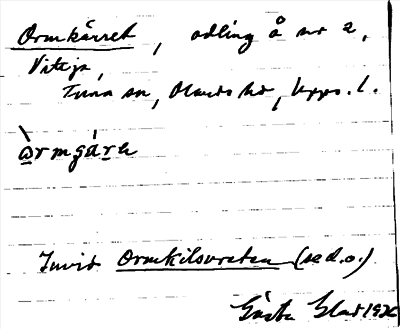 Ormkärret, odling å nr 2,
Vitsja,
Tuna sn, Olands hd, Upps. l.
Invid Ormkilsvreten (se d.o.)
Gösta 1926